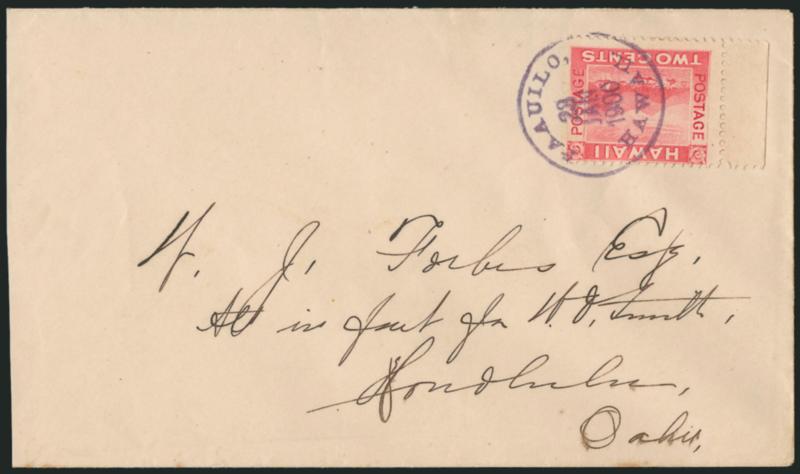 PAAUILO, HAWAII.
29
JAN
1900
TWO CENTS
POSTAGE
POSTAGE
HAWAII
W. J. Forbes Esq.
Att in fact for W. O. Smith,
Honolulu,
Oahu,